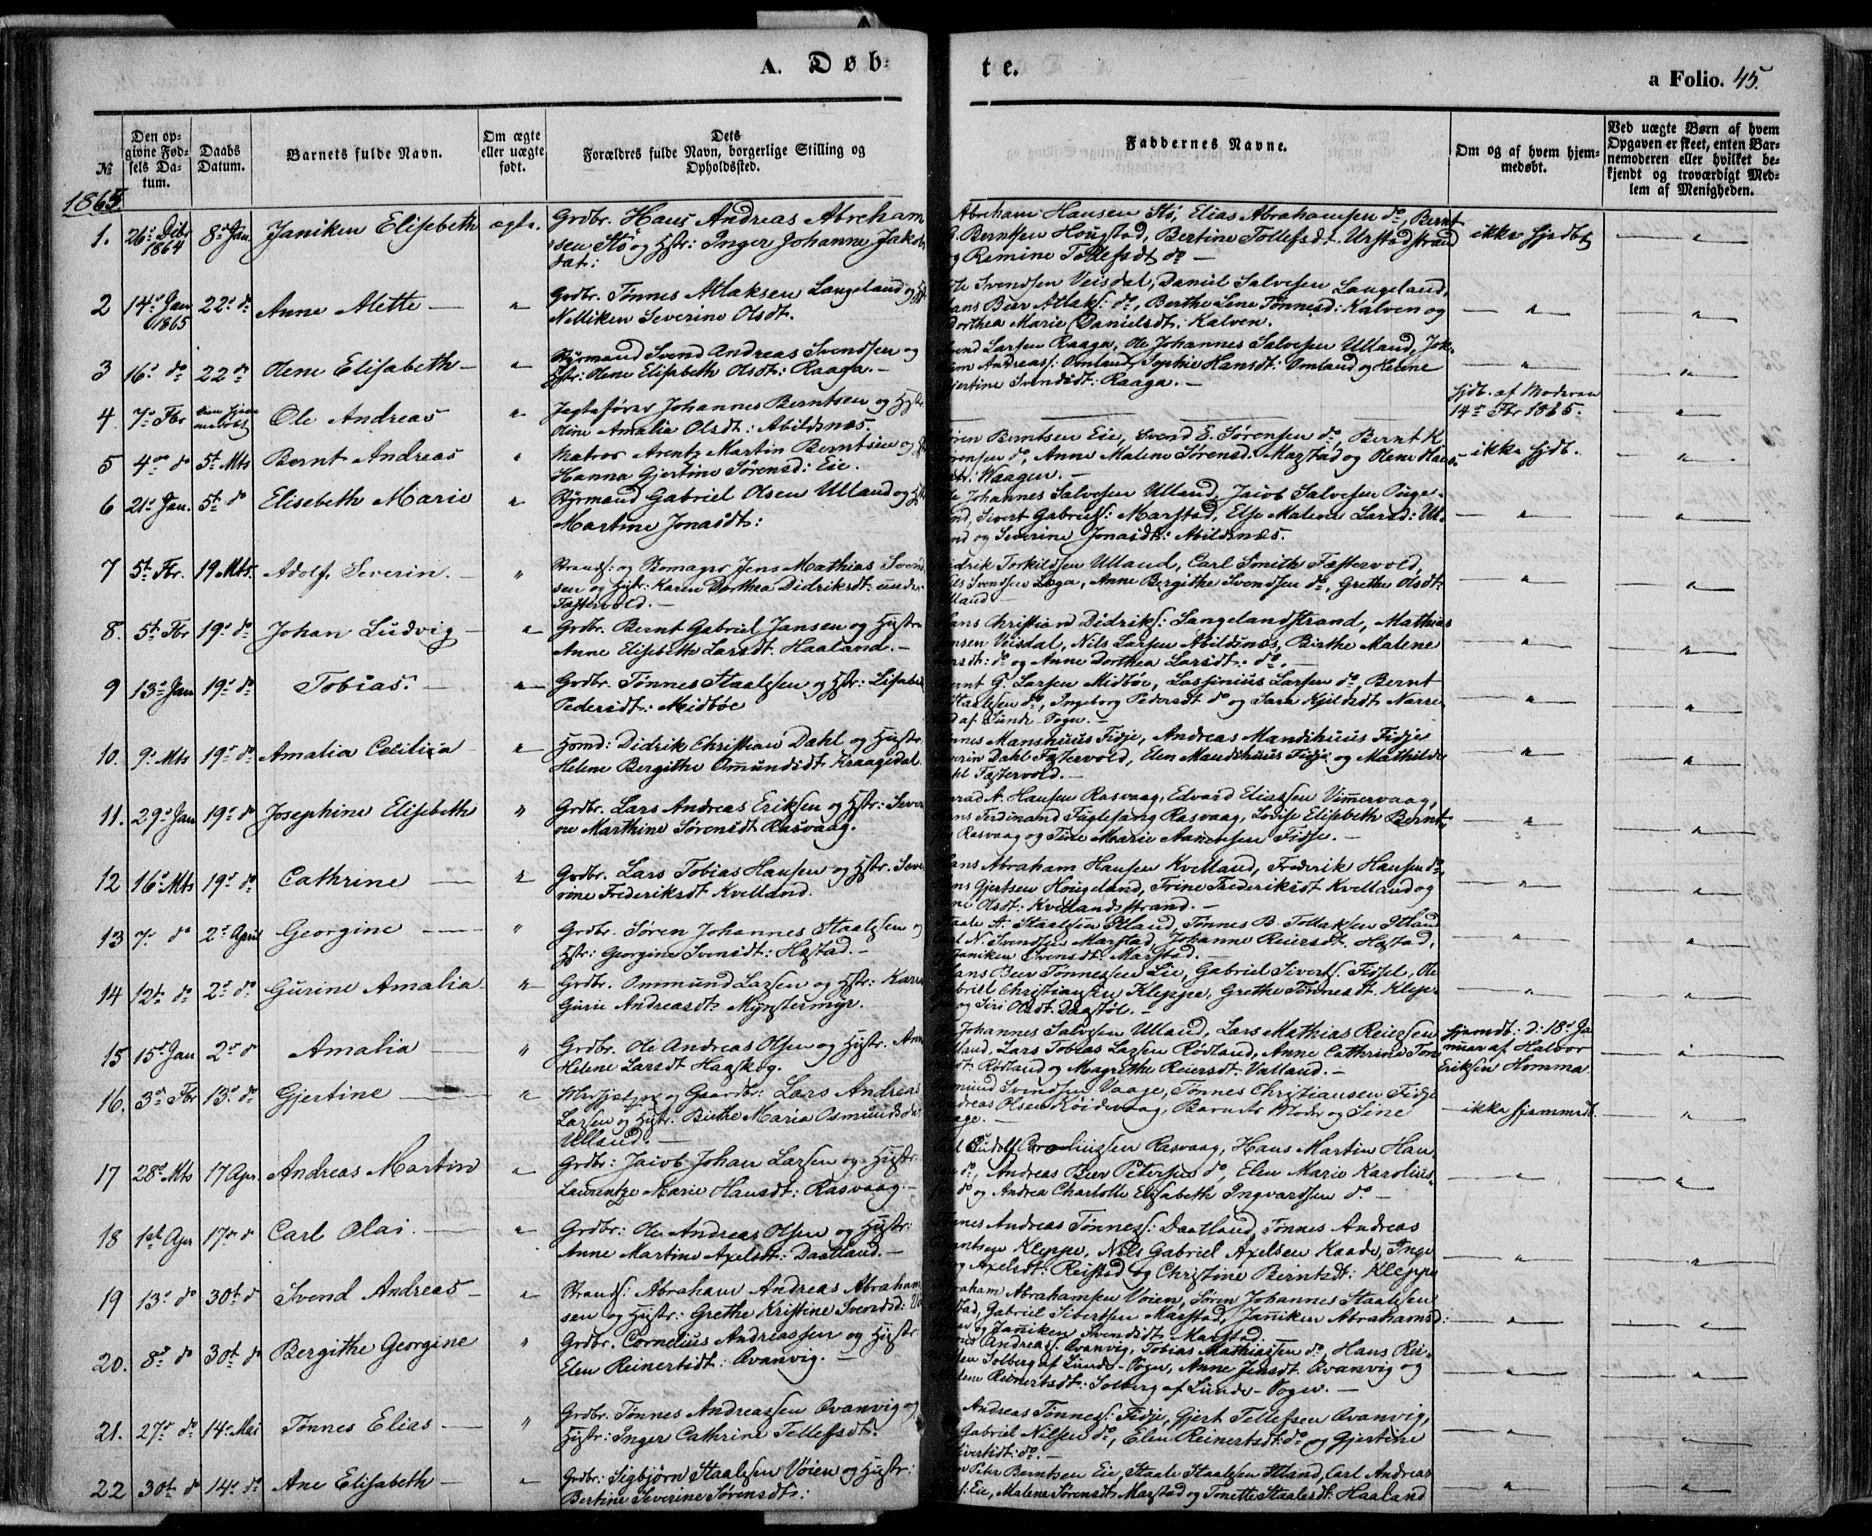 A. Døb-
te.
a Folio. 45.
№
Den op-
givne Fød-
sels Da-
tum.
Daabs
Datum.
Barnets fulde Navn.
Om ægte
eller uægte
født.
Dets
Forældres fulde Navn, borgerlige Stilling og
Opholdssted.
Faddernes Navne.
Om og af hvem hjem-
medøbt.
Ved uægte Børn af hvem
Opgaven er skeet, enten Bar-
nemoderen eller hvilket be-
kjendt og troværdigt Med-
lem af Menigheden.
1865
1. 26 Dcbr 1864 8 Jan. Janiken Elisebeth ægte. Grdbr. Hans Andreas Abraham
sen Stø og Hstr: Inger Johanne Jakobs
dat:
Abraham Hansen Stø, Elias Abrahamsen do, Bernt
G. Berntsen Hougstad, Bertine Tollefsdt. Urstadstrand
og Remine Tollefsdt do —
ikke hjdbt
2 14 Jan 1865 22 do Anne Alette — " Grdbr. Tønnes Atlaksen Langeland og Hstr
Nelliken Severine Olsdt.
Ole Svendsen Veisdal, Daniel Salvesen Langeland,
Hans Beer Atlaks: do, Berthe Lene Tønnesd: Kalven og
Dorthea Marie Danielsdt: Kalven.
3 16 do 22 do Olene Elisabeth — " Styrmand Svend Andreas Svendsen og
Hstr: Olene Elisabeth Olsdt: Raaga. —
Svend Larsen Raaga, Ole Johannes Salvesen Ulland, Jok-
um Andreas: Omland, Sophie Hansdt: Omland og Helene
Gjertine Svendsdt: Raaga. —
4. 7 Fbr Ole Andreas " Jagtefører Johannes Berntsen og Hstr
Oline Amalia Olsdt: Abildsnæs.
hjdb. af Moderen
14 Fbr 1865.
5 4 do 5t Mts Bernt Andreas " Matros Arentz Martin Berntsen og Hst
Hanna Gjertine Sørensd: Eie.
Søren Berntsen Eie, Svend E. Sørensen do, Bernt K
Sørensen do, Anne Malene Sørensd. Marstad og Olene Hans-
dtr: Waagen. —
ikke hjdb.
6 21 Jan. 5t do Elisebeth Marie " Styrmand Gabriel Olsen Ulland og Hstr
Martine Jonasdt:
Ole Johannes Salvesen Ulland, Jacob Salvesen
Sivert Gabriels: Marstad, Else Malene Larsd: Ul-
land og Severine Jonasdt: Abildsnæs.
7 5t Fbr. 19 Mts. Adolf Severin. — " Strands: og Skomager Jens Mathias Svend
sen og Hstr: Karen Dorthea Didriksdt: under
Fastervold. —
Didrik Torkildsen Ulland, Carl Smith Fastervold,
Nils Svendsen Løga, Anne Bergithe Svendsen do, Grethe Olsdt:
Ulland —
8. 5t Fbr 19 do Johan Ludvig — " Grdbr. Bernt Gabriel Jansen og Hustr
Anne Elisebeth Larsdt. Haaland. —
Hans Christian Didriks: Langelandstrand, Mathias
Jansen Veisdal, Nils Larsen Abildsnæs, Birthe Malene
Larsdt: do og Anne Dorthea Larsdt. do. —
9 13 Jan 19 do Tobias. — " Grdbr. Tønnes Staalesen og Hstr: Lisabet
Pedersdt: Midbøe
Bernt G. Larsen Midbøe, Lassenius Larsen do Bernt
Staalesen do, Ingeborg Pedersdt do og Sara Kjeldsdt Narre-
af Lunde Sogn. —
10. 9 Mts 19 do Amalia Cecilia — " Hsmd: Didrik Christian Dahl og Hustr
Helene Bergithe Omundsdt Kraagedal.
Tønnes Manshuus Fidje, Andreas Mandshuus Fidje
Severin Dahl Fastervold, Elen Mandshuus Fidje og Mathilde
Dahl Fastervold. —
11. 29 Jan 19 do Josephine Elisebeth " Grdbr. Lars Andreas Eriksen og Hstr: Sever
ine Marthine Sørensdt Rasvaag.
A. Hansen Rasvaag, Edvard Eliassen Vimmervaag,
Hans Ferdinand Fuglesang Rasvaag, Lovise Elisebeth Bernt-
Rasvaag og Tine Marie Aanensen Fidje. —
12 16 Mts 19 do Cathrine — " Grdbr. Lars Tobias Hansen og Hstr. Seve
rine Frederiksdt Kvelland.
Hans Abraham Hansen Kvelland, Frederik Hansen do,
Jens Gjertsen Hougeland, Trine Frederiksdt Kvelland og
Olsdt: Kvellandstrand. —
13 7 do 2 April Georgine — " Grdbr. Søren Johannes Staalesen og
Hstr: Georgine Svensdt: Hastad. —
Staale A. Staalesen Stland, Tønnes B. Tollaksen Stland
N. Svendsen Marstad, Johanne Reiersdt. Hastad,
Janiken Svensdt Marstad. —
14 12t do 2 do Gurine Amalia " Grdbr. Ommund Larsen og Hstr: Karen
Gurie Andreasdt: Mynstermyr.
Hans Beer Tønnessen Eie, Gabriel Siverts. Fidsel, Ole
Gabriel Christiansen Kleppe, Grethe Tønnesdt. Klep-
pe og Siri Olsdt. Daastøl. —
15 15t Jan 2 do Amalia — " Grdbr. Ole Andreas Olsen og Hustr. Ann
Helene Larsdt Haaskog.
Johannes Salvesen Ulland, Lars Mathias Reiersen
Lars Tobias Larsen Rødland, Anne Cathrine Tore
dt Rødland og Magrethe Reiersdt. Valland. —
hjemdt: d: 18 Ja
nuar af Halvor
Eriksen Homma
16. 3 Fbr 13. do Gjertine — " og Gaardbr: Lars Andreas
Larsen og Hustr: Birthe Maria Osmundsdt
Ulland. —
Omund Svendsen Vaage, Tønnes Christiansen Fidje
Andreas Olsen Roidevaag, Barnets Moder og Sine
Vaage. —
ikke hjemmedt.
17 28 Mts 17 Apr. Andreas Martin " Grdbr: Jacob Johan Larsen og Hustr
Laurentze Marie Hansdt: Rasvaag —
Corneliussen Rasvaag, Hans Martin Han
do, Andreas Beer Petersen do, Elen Marie Karolius-
do og Andrea Charlotte Elisabeth Ingvardsen do —
18 1st Apr 17 do Carl Olai. — " Grdbr: Ole Andreas Olsen og Hustr:
Anne Martine Axelsdt: Daatland. —
Tønnes Andreas Tønness: Daatland, Tønnes Andreas
Berntsen Kleppe, Nils Gabriel Axelsen Kaade, Inge
borg Axelsdt: Reistad og Christine Berntsdt: Kleppe
19 13 do 30t do Svend Andreas — " Strands: Abraham Andreas Abraham
sen og Hustr: Grethe Kristine Svendsd:
Abraham Abrahamsen Voien, Søren Johannes Staalesen
Hastad, Gabriel Sivertsen Marstad, Janiken Abrahamsd:
og Janiken Svendsdt. Marstad.
20. 8 do 30t do Bergithe Georgine " Grdbr. Cornelius Andreassen og Hustr
Elen Reinertsdt: Ovanvig. —
Andreas: Ovanvig, Tobias Mathiassen do, Hans Rei-
Solberg af Lunde-Sogn, Anne Jensdt. Ovanvig og
Reinertsdt. Solberg af Lunde-Sogn. —
21. 27 do 14 Mai Tønnes Elias — " Grdbr. Tønnes Andreassen Ovanvig og
Hustr: Inger Cathrine Tellefsdt.
Andreas Tønness: Fidje, Gjert Tellefsen Ovanvig,
Gabriel Nilsen do, Elen Reinertsdt: do og Gjertine
Sivertsdt: do —
22 30t do 14 do Ane Elisabeth — " Grdbr: Sigbjørn Staalesen Voien og Hustr:
Bertine Severine Sørensdt:
Peter Berntsen Eie, Staale Staalesen Stland, Carl Andreas
Eie, Malene Sørensdt: Marstad og Tonette Staalesdt: Haaland